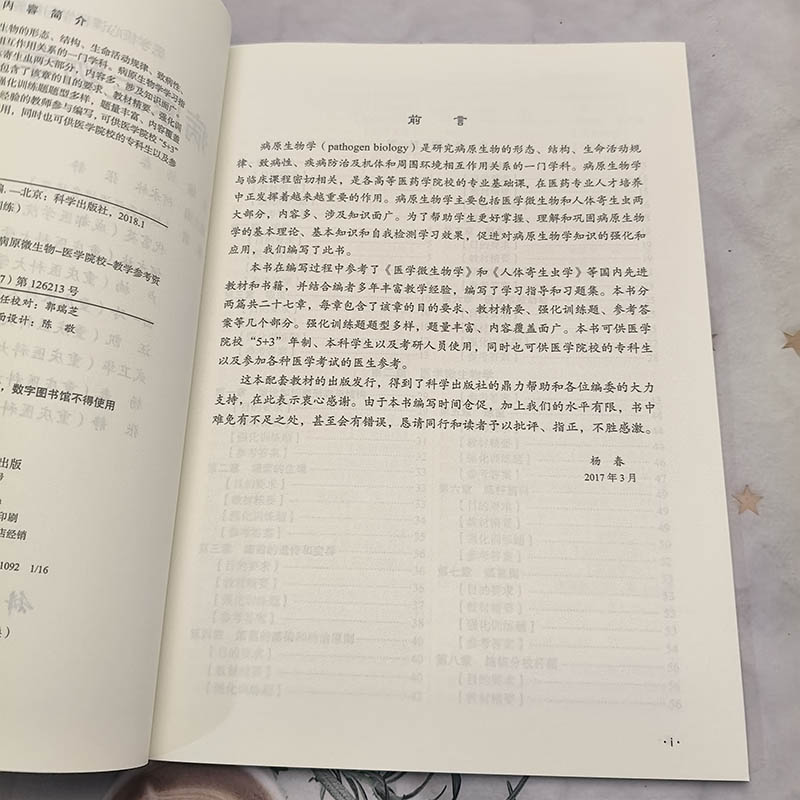 内容简介
生物的形态、结构、生命活动规律、致病性、
相互作用关系的一门学科。病原生物学学习指
寄生虫两大部分，内容多、涉及知识面广。
包含了该章的目的要求、教材精要、强化训
强化训练题题型多样，题量丰富、内容覆盖
经验的教师参与编写，可供医学院校“5+3”
用，同时也可供医学院校的专科生以及参
编.—北京：科学出版社，2018.1
训练）
病原微生物-医学院校-教学参考资
7）第 126213 号
任校对：郭瑞芝
面设计：陈 敬
，数字图书馆不得使用
出版
号
印刷
店经销
1092 1/16
前 言
病原生物学（pathogen biology）是研究病原生物的形态、结构、生命活动规
律、致病性、疾病防治及机体和周围环境相互作用关系的一门学科。病原生物学
与临床课程密切相关，是各高等医药学院校的专业基础课，在医药专业人才培养
中正发挥着越来越重要的作用。病原生物学主要包括医学微生物和人体寄生虫两
大部分，内容多、涉及知识面广。为了帮助学生更好掌握、理解和巩固病原生物学
的基本理论、基本知识和自我检测学习效果，促进对病原生物学知识的强化和
应用，我们编写了此书。
本书在编写过程中参考了《医学微生物学》和《人体寄生虫学》等国内先进
教材和书籍，并结合编者多年丰富教学经验，编写了学习指导和习题集。本书分
两篇共二十七章，每章包含了该章的目的要求、教材精要、强化训练题、参考答
案等几个部分。强化训练题题型多样，题量丰富、内容覆盖面广。本书可供医学
院校“5+3”年制、本科学生以及考研人员使用，同时也可供医学院校的专科生
以及参加各种医学考试的医生参考。
这本配套教材的出版发行，得到了科学出版社的鼎力帮助和各位编委的大力
支持，在此表示衷心感谢。由于本书编写时间仓促，加上我们的水平有限，书中
难免有不足之处，甚至会有错误，恳请同行和读者予以批评、指正，不胜感激。
杨 春
2017 年 3 月
· i ·